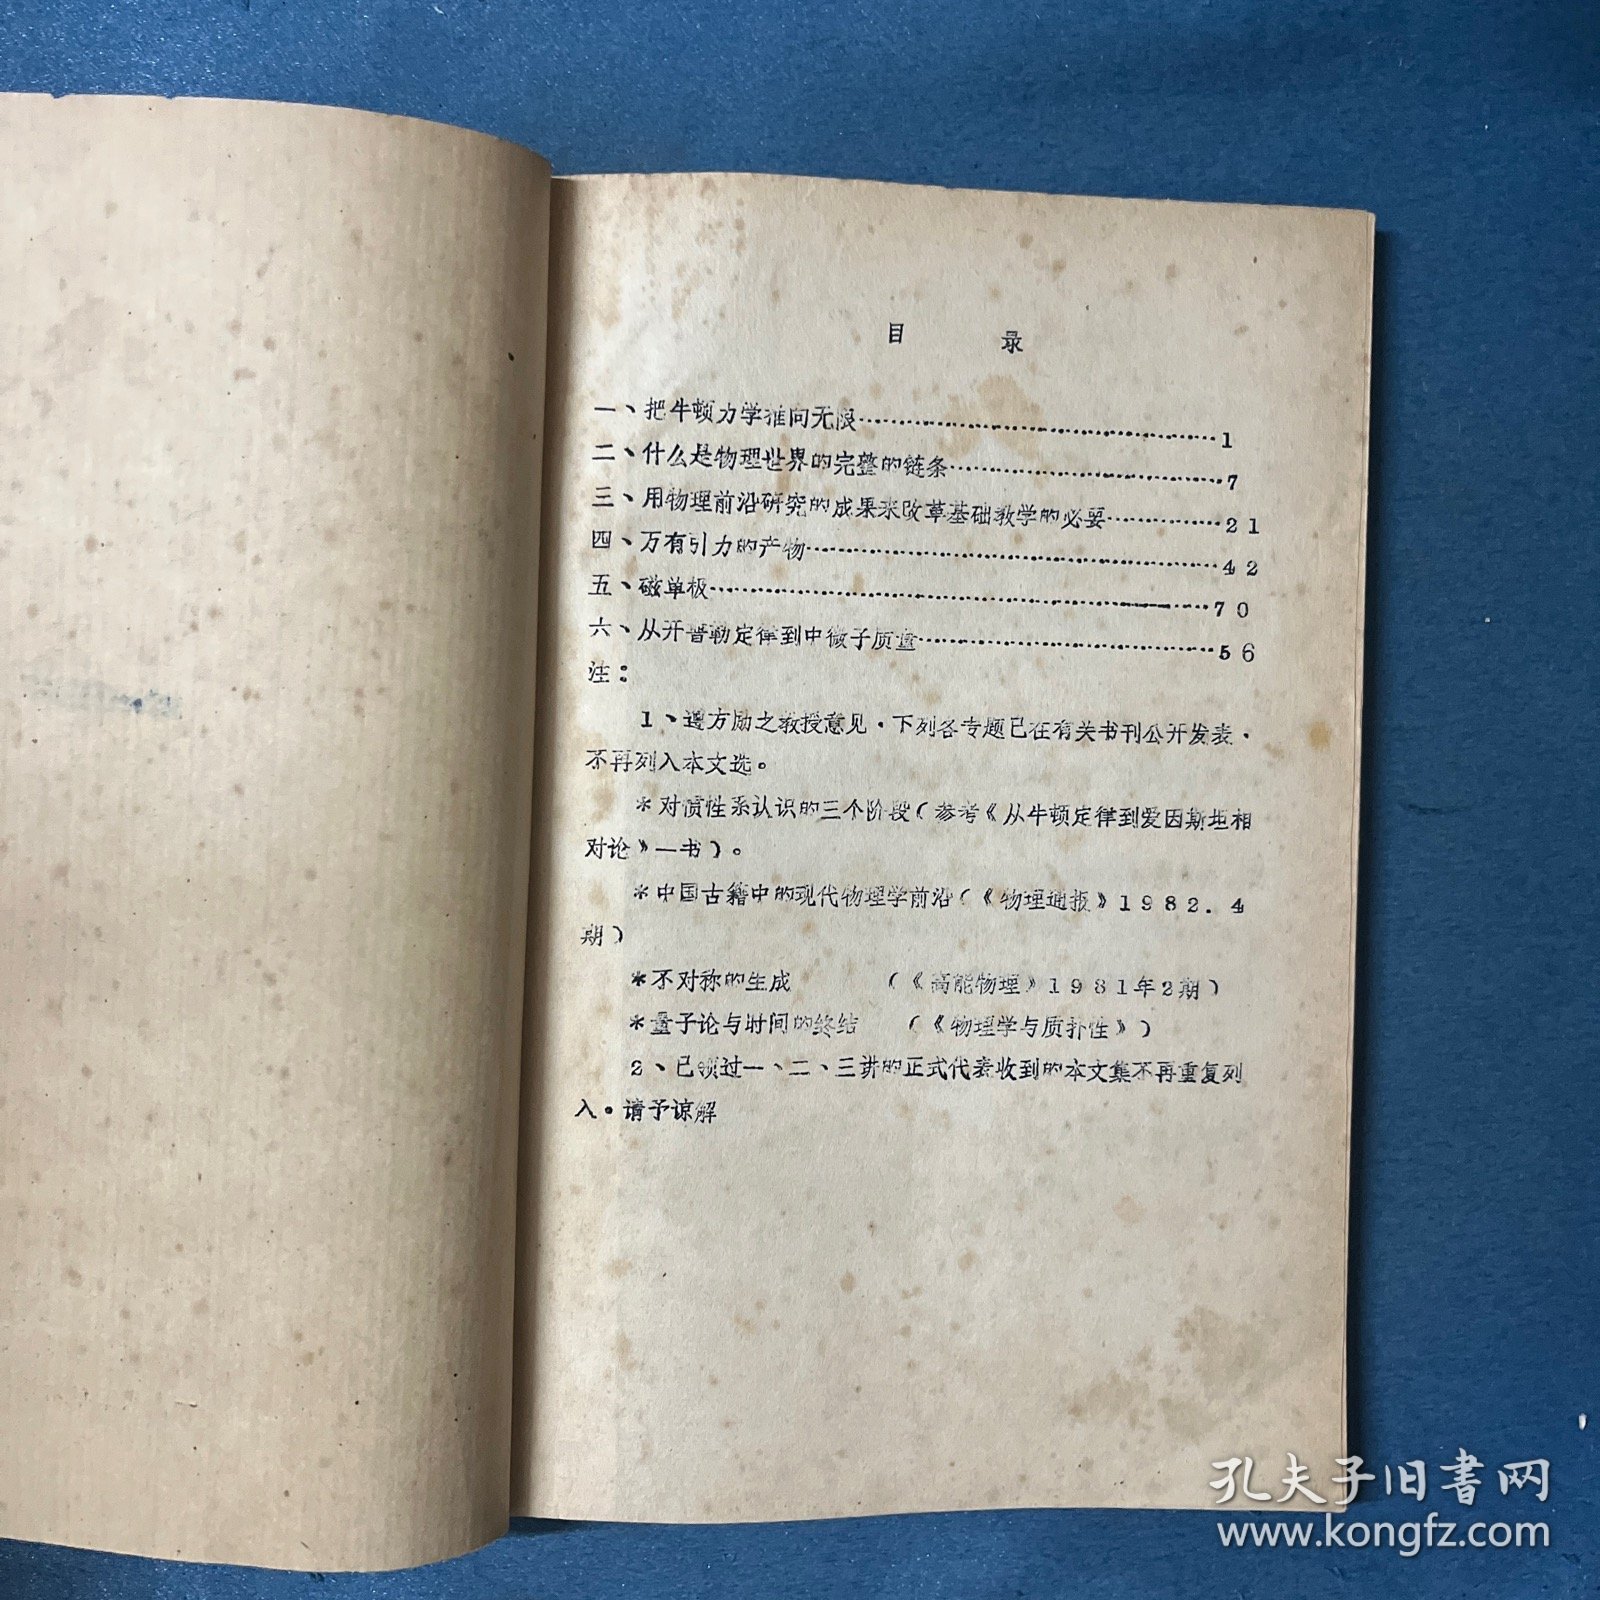 目 录
一、把牛顿力学推向无限……………………………1
二、什么是物理世界的完整的链条……………………7
三、用物理前沿研究的成果来改革基础教学的必要…………21
四、万有引力的产物…………………………………42
五、磁单极……………………………………………70
六、从开普勒定律到中微子质量………………………56
注：
1、遵方励之教授意见．下列各专题已在有关书刊公开发表．
不再列入本文选。
*对惯性系认识的三个阶段（参考《从牛顿定律到爱因斯坦相
对论》一书）。
*中国古籍中的现代物理学前沿（《物理通报》1982.4
期）
*不对称的生成 （《高能物理》1981年2期）
*量子论与时间的终结 （《物理学与质扑性》）
2、已领过一、二、三讲的正式代表收到的本文集不再重复列
入。请予谅解
孔夫子旧书网
www.kongfz.com